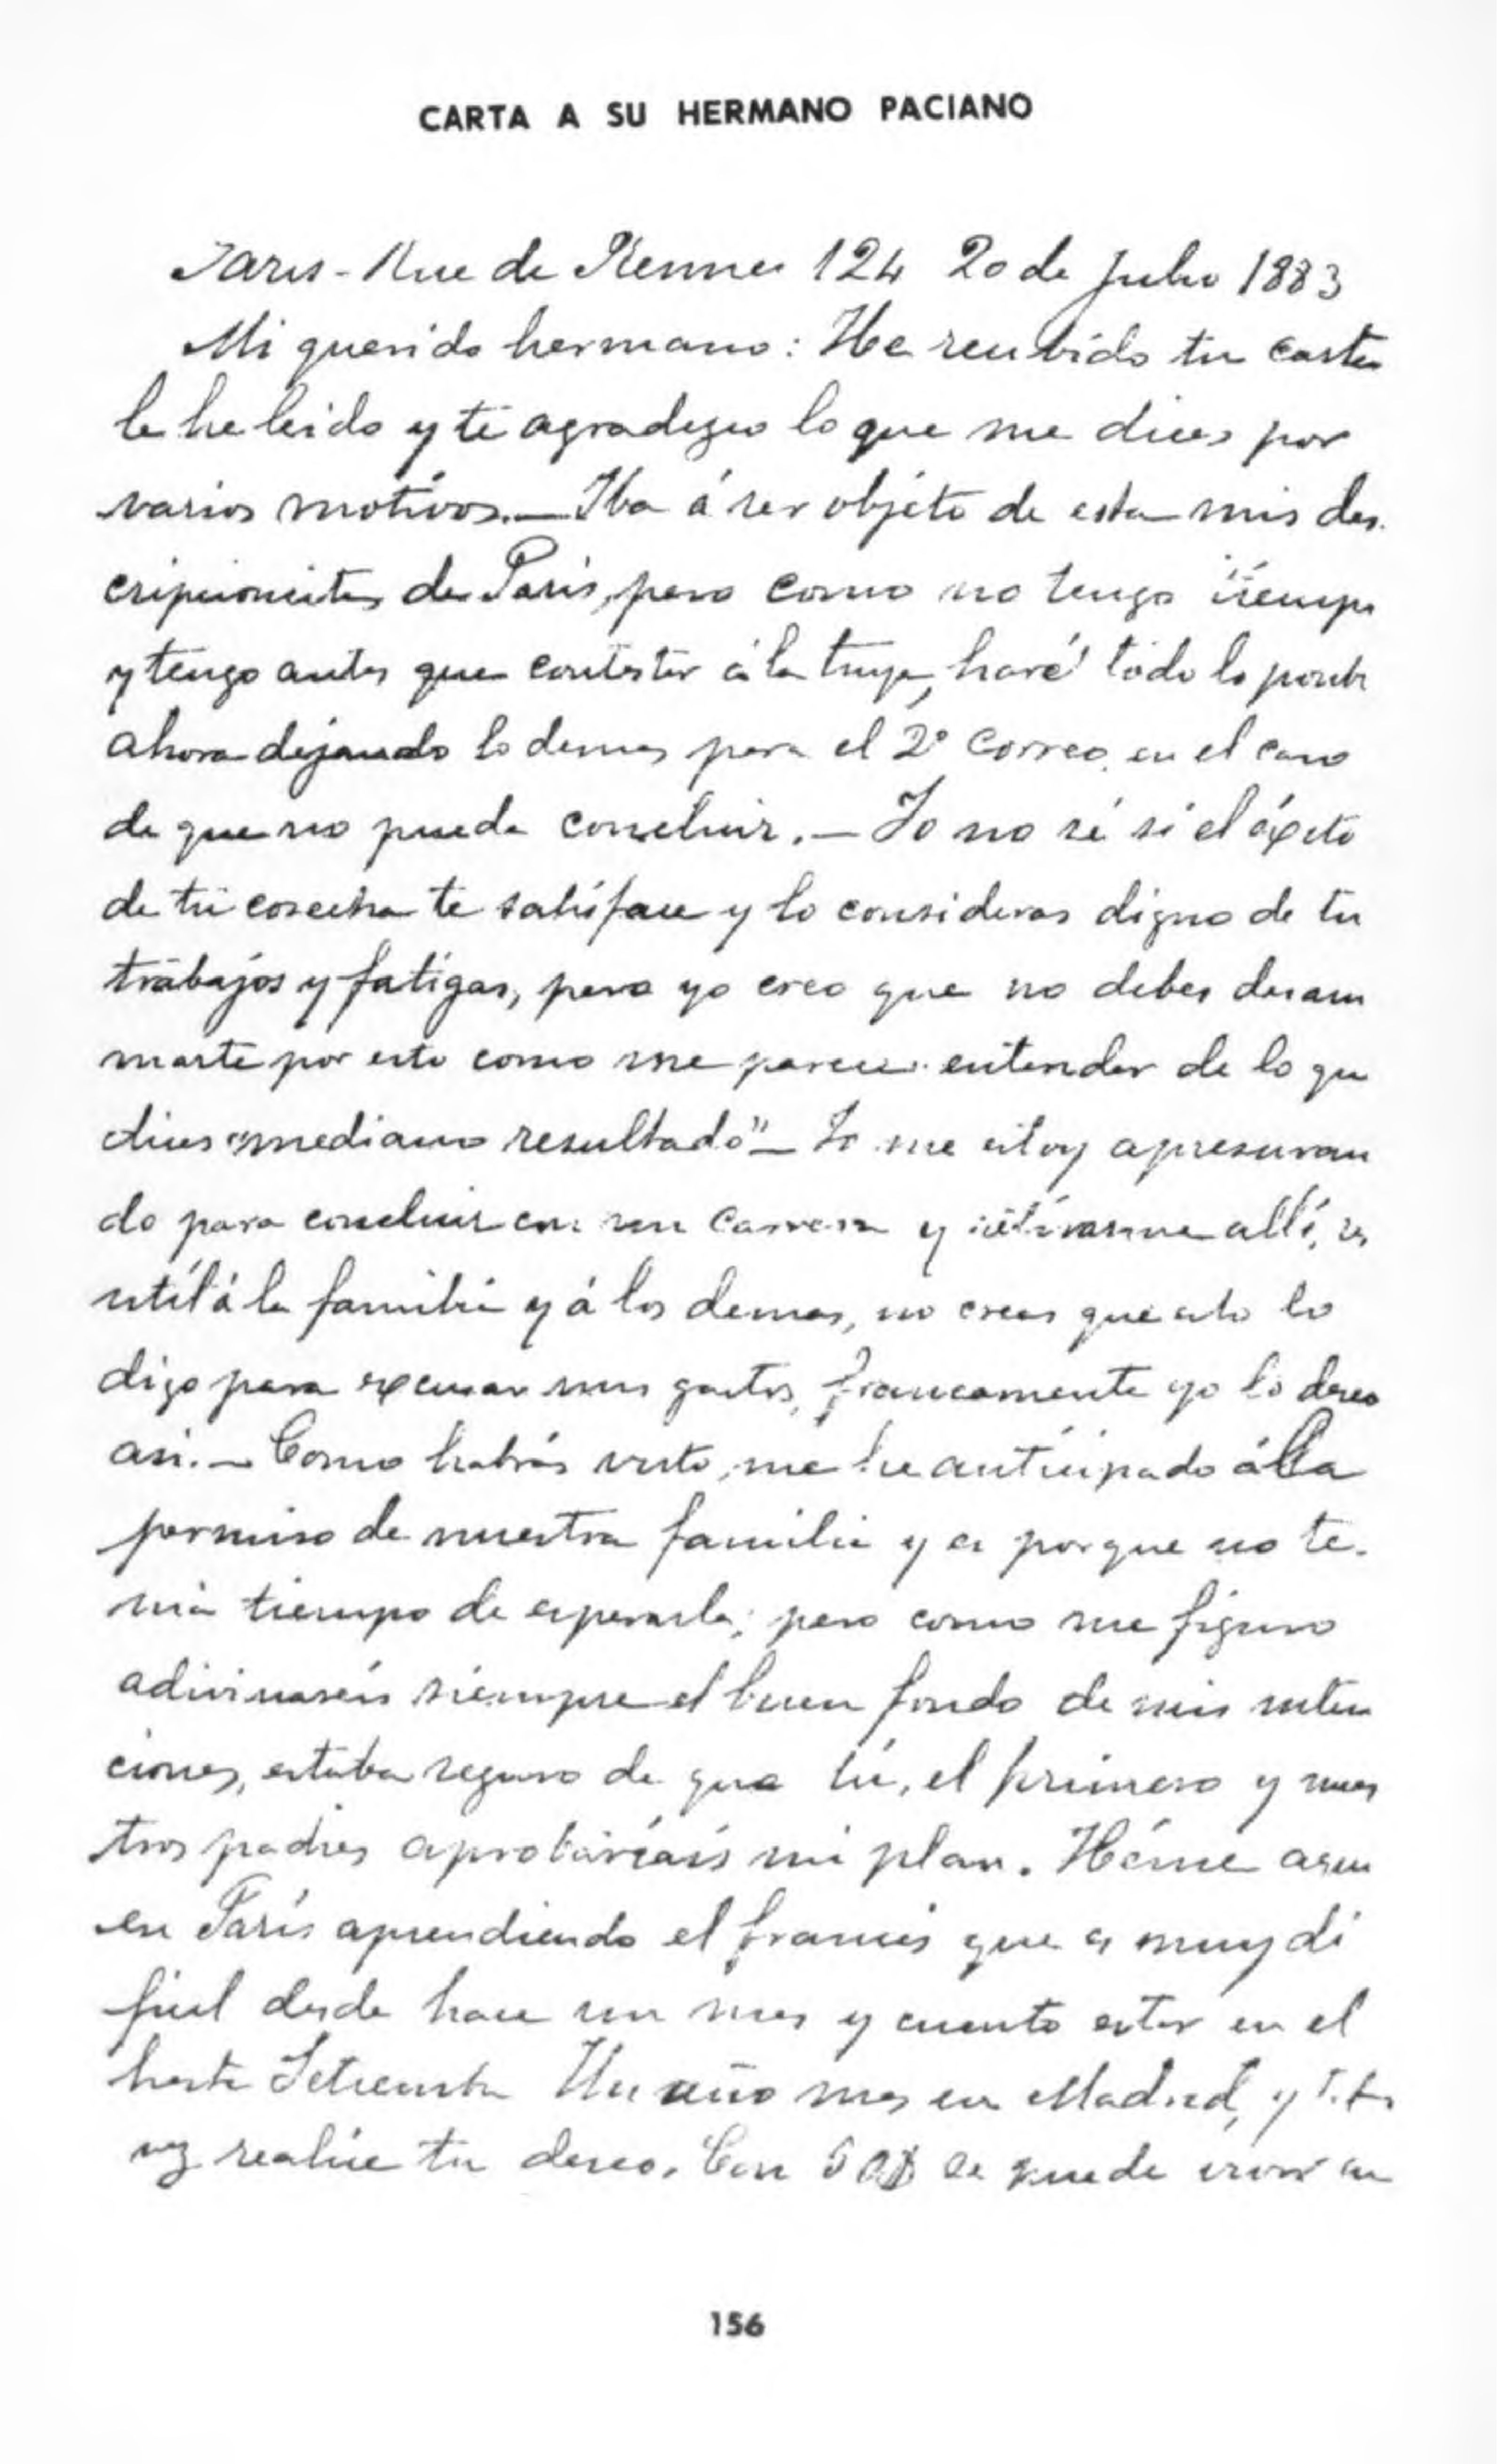 CARTA A SU HERMANO PACIANO
Paris - Rue de Rennes 124 20 de Julio 1883
Mi querido hermano: He recibido tu carta
la he leido y te agradezco lo que me dices por
varios motivos. — Iba á ser objeto de esta mis des-
cripcioncitas de Paris, pero como no tengo tiempo
y tengo antes que contestar á la tuya, haré todo lo posible
ahora dejando lo demas para el 2º correo, en el caso
de que no pueda concluir. — Yo no sé si el éxito
de tu cosecha te satisface y lo consideras digno de tu
trabajos y fatigas, pero yo creo que no debes desani
marte por esto como me parece entender de lo que
dices "mediano resultado" — Yo me estoy apresuran
do para concluir con mi carrera y retirarme allí, ser
util á la familia y á los demas, no creas que esto lo
digo para excusar mis gastos, francamente yo lo deseo
asi. — Como habrás visto, me he anticipado á la
permiso de nuestra familia y es porque no te-
nia tiempo de esperarla; pero como me figuro
adivinareis siempre el buen fondo de mis inten
ciones, estaba seguro de que tú, el primero y nues
tros padres aprobariais mi plan. Héme aqui
en Paris aprendiendo el francés que es muy di
ficil desde hace un mes y cuento estar en el
hasta Setiembre Un año mas en Madrid, y tal
vez realice tu deseo. Con 50$ se puede vivir en
156